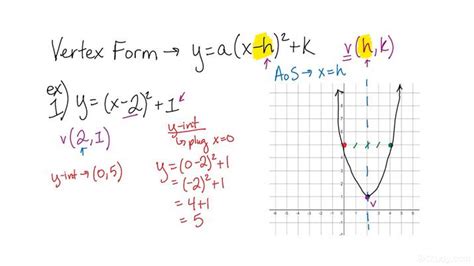 Vertex Form → y=a(x-h)²+k
v(h,k)
AoS → x=h
ex
1) y=(x-2)²+1
k
v(2,1)
y-int → (0,5)
y-int
↳ plug x=0
y=(0-2)²+1
=(-2)²+1
=4+1
=5
v